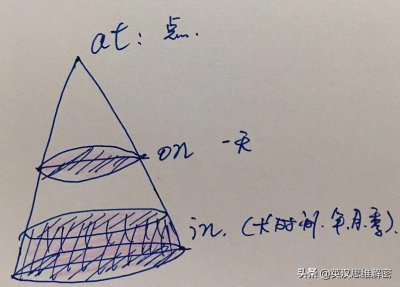 at: 点.
on 一天
in. (长时间.年.月.季).
头条 @英汉思维解密